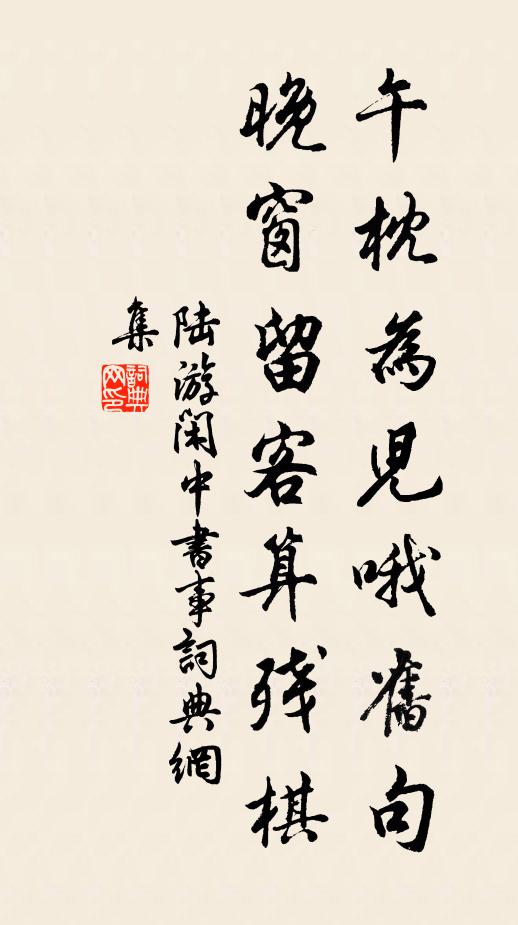 午枕為児哦舊句
晚窗留客算残棋
陆游閑中書事詞典網
集
詞典
网印